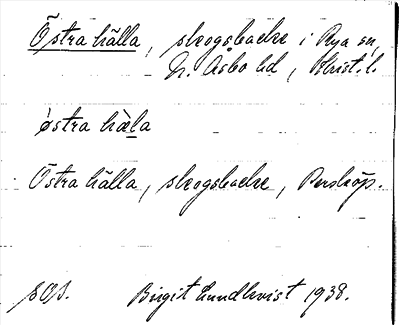 Östra hälla, skogsbacke i Rya sn,
N. Åsbo hd, Krist. l.
östra hä̀la
Östra hälla, skogsbacke, Perstorp.
Birgit Lundkvist 1938.